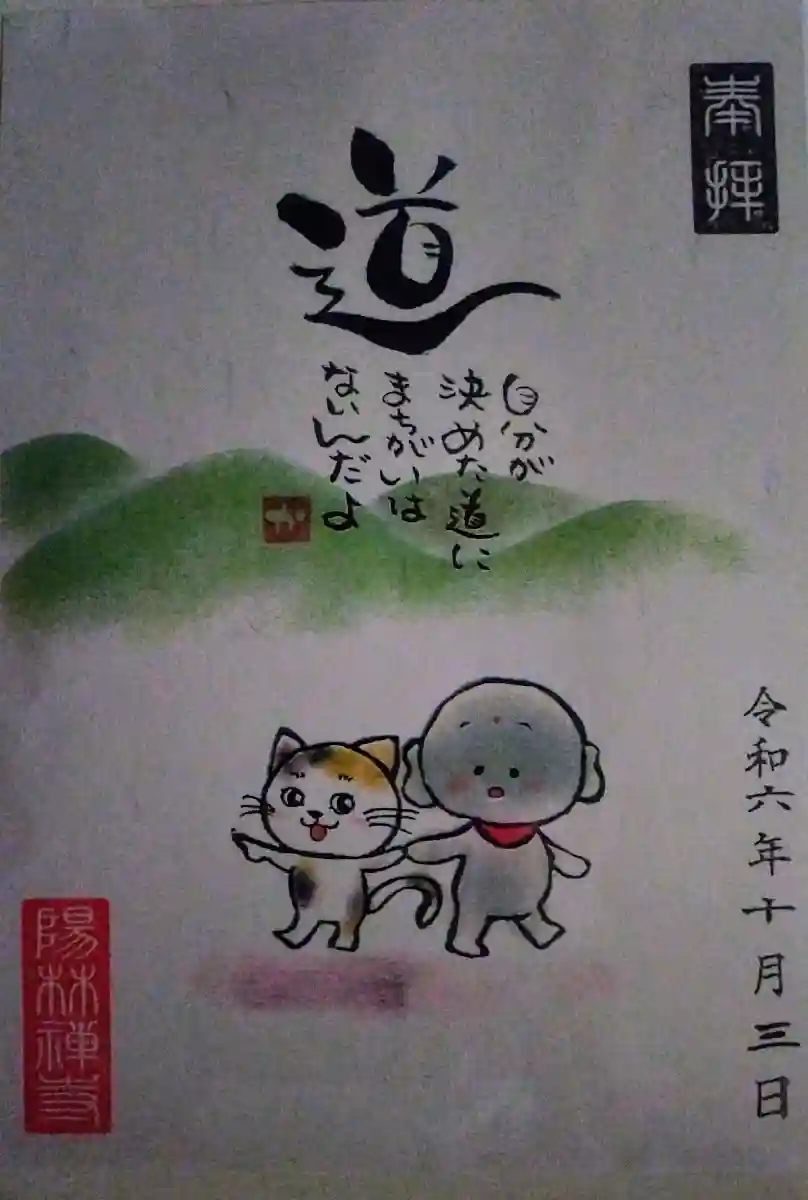 奉拝
道
自分が
決めた道に
まちがいは
ないんだよ
令和六年十月三日
陽林禅寺